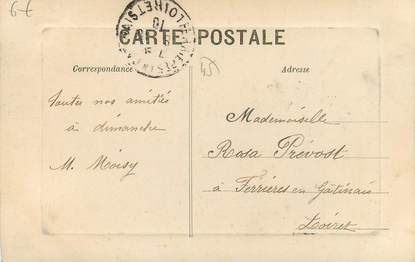 6€
CARTE POSTALE
Correspondance
Adresse
LOIRET
45
toutes nos amitiés
à dimanche
M. Moisy
Mademoiselle
Rosa Prévost
à Ferrières en Gâtinais
Loiret